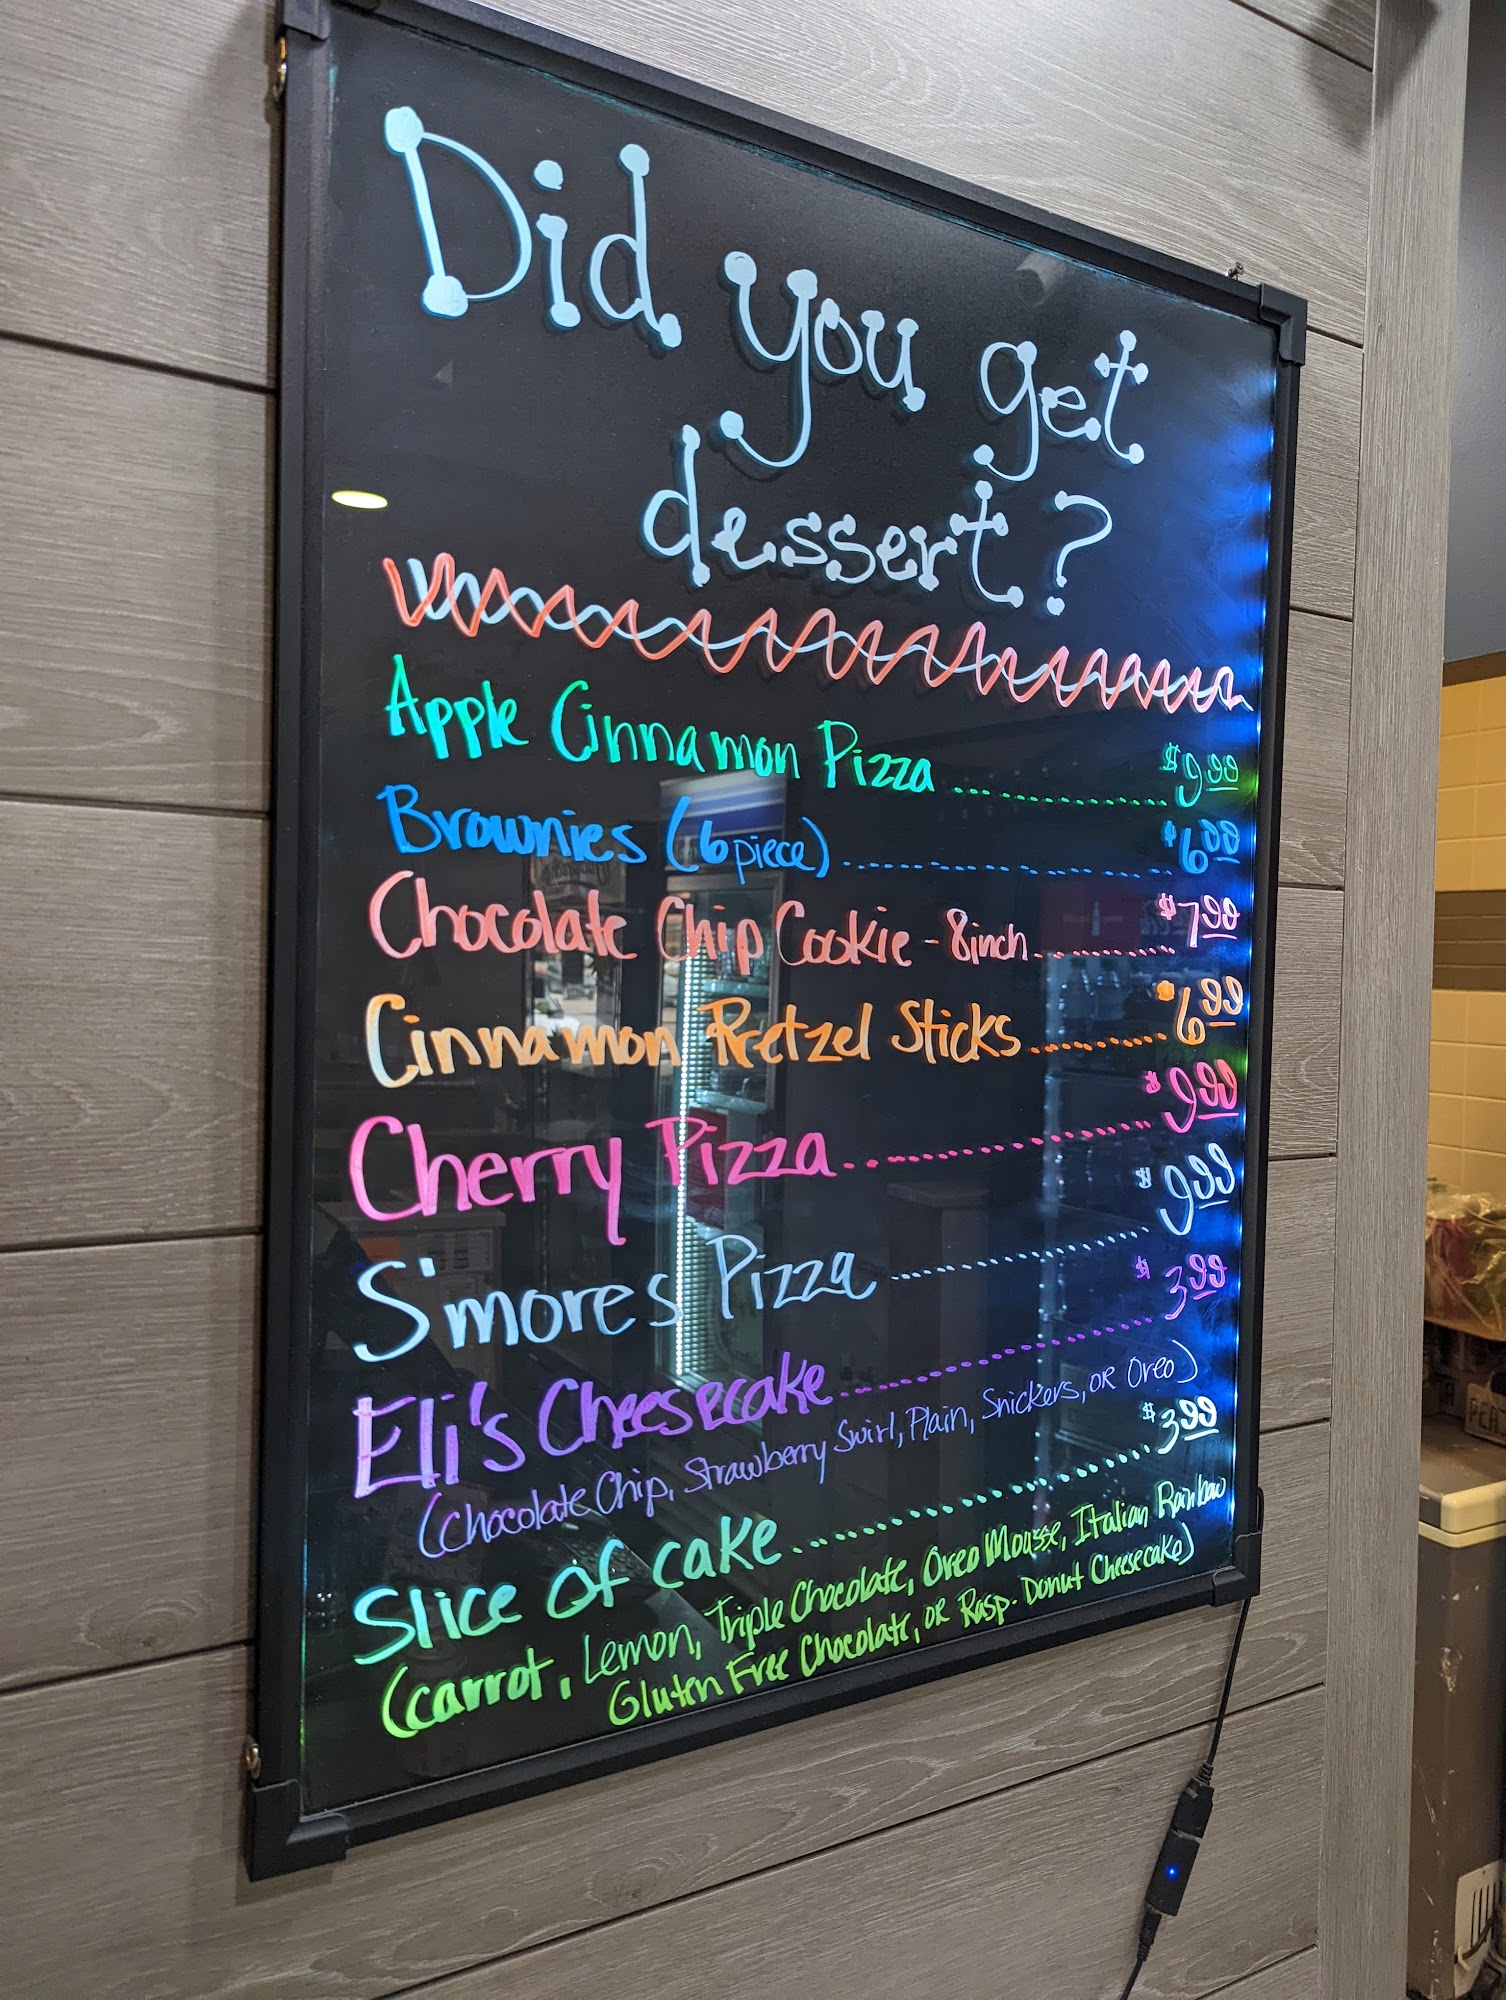 Did you get
dessert?
Apple Cinnamon Pizza .................. $9.99
Brownies (6 piece) .................. $6.99
Chocolate Chip Cookie - 8inch ............ $7.99
Cinnamon Pretzel Sticks ............ $6.99
Cherry Pizza .................. $9.99
S'mores Pizza .................. $9.99
Eli's Cheesecake .................. $3.99
(Chocolate Chip, Strawberry Swirl, Plain, Snickers, OR Oreo)
Slice of cake .................. $3.99
(carrot, Lemon, Triple Chocolate, Oreo Mousse, Italian Rainbow
Gluten Free Chocolate, OR Rasp. Donut Cheesecake)